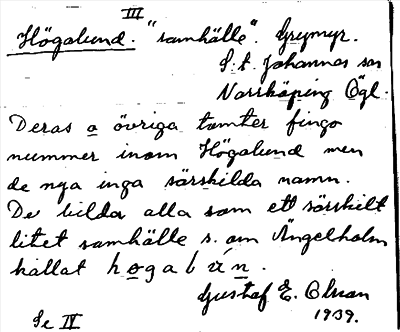 III
Högalund. "samhälle". Grymyr.
S:t Johannes sn
Norrköping Ögl.
Deras o övriga tomter fingo
nummer inom Högalund men
de nya inga särskilda namn.
De bilda alla som ett särskilt
litet samhälle s. om Ängelholm
kallat hogalún.
Gustaf E. Olsson
1939.
Se IV